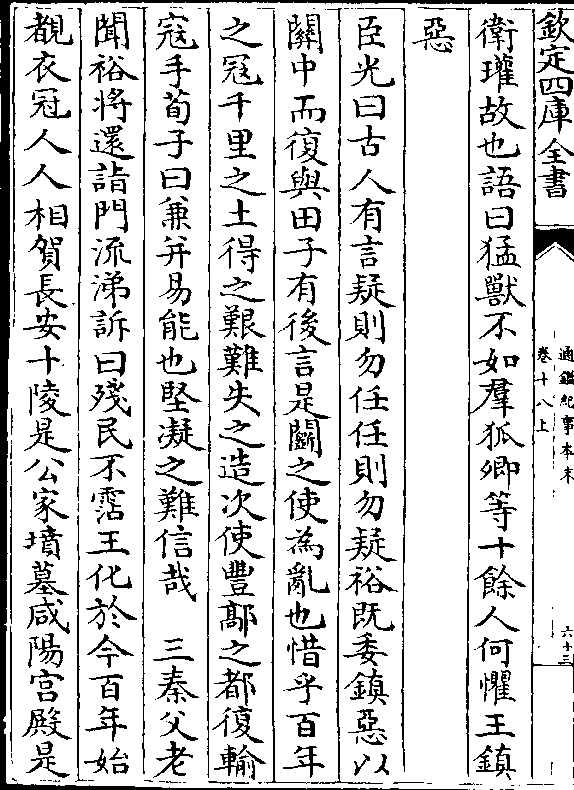 欽定四庫全書
通鑑紀事本末
卷十八上
六十三
衛瓘故也語曰猛獸不如羣狐卿等十餘人何懼王鎮
惡
臣光曰古人有言疑則勿任任則勿疑裕既委鎮惡以
關中而復與田子有後言是鬭之使為亂也惜乎百年
之寇千里之土得之艱難失之造次使豐鄗之都復輸
寇手荀子曰兼并易能也堅凝之難信哉　三秦父老
聞裕將還詣門流涕訴曰殘民不霑王化於今百年始
覩衣冠人人相賀長安十陵是公家墳墓咸陽宫殿是